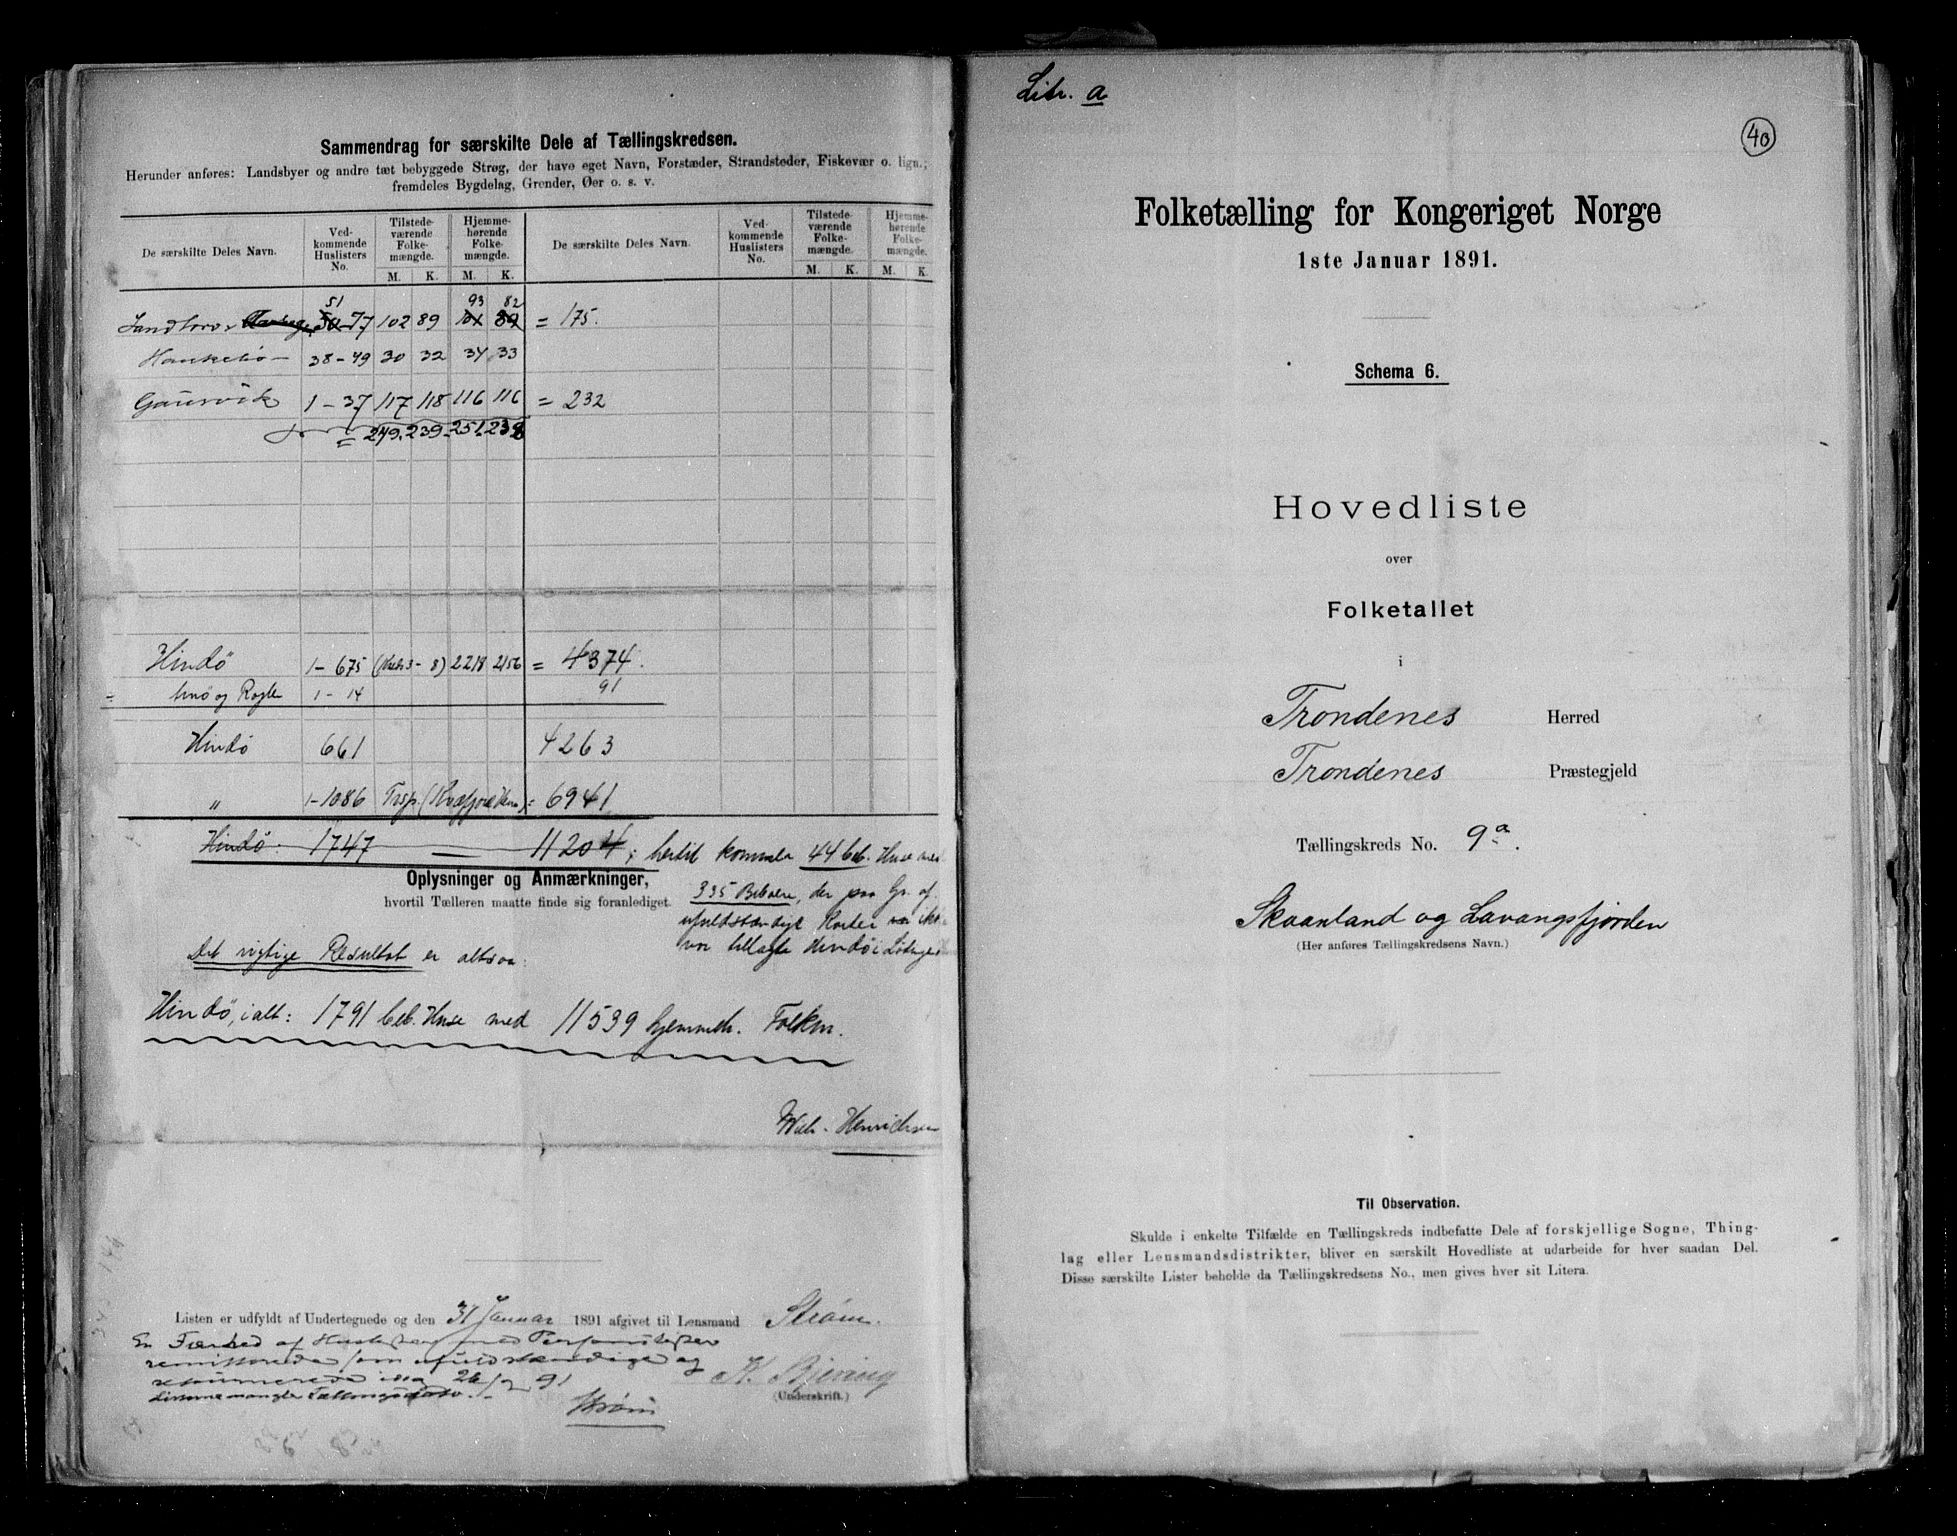 Sammendrag for særskilte Dele af Tællingskredsen.
Herunder anføres: Landsbyer og andre tæt bebyggede Strøg, der have eget Navn, Forstæder, Strandsteder, Fiskevær o. lign.;
fremdeles Bygdelag, Grender, Øer o. s. v.
De særskilte Deles Navn. Ved-kommende Huslisters No. Tilstede-værende Folke-mængde. M. K. Hjemme-hørende Folke-mængde. M. K. De særskilte Deles Navn. Ved-kommende Huslisters No. Tilstede-værende Folke-mængde. M. K. Hjemme-hørende Folke-mængde. M. K.
51 93 82
Sandtorv 50-77 102 89 101 89 = 175.
38-49 30 32 34 33
Gausvik 1-37 117 118 116 116 = 232
= 249. 239. 251. 238
Hindø 1-675 (Kreds 3-8) 2218 2156 = 4374.
= og Rogla 1-14 91
Hindø 661 4263
" 1-1086 Trsp. = 6941
Hindø: 1747 — 11204; hertil kommer 44 beb. Huse med
Oplysninger og Anmærkninger,
hvortil Tælleren maatte finde sig foranlediget.
335 Beboere, der paa Gr. af
ufuldstændige Karter ikke
var tillagte Hindø i Lødingen
Det rigtige Resultat er altsaa:
Hindø, ialt: 1791 beb. Huse med 11539 hjemmeh. Folkm.
Henrichsen
Listen er udfyldt af Undertegnede og den 31 Januar 1891 afgivet til Lensmand Strøm.
En af med
som ufuldstændige og
26/2 91
mangler
K. Bjering
(Underskrift.)
Strøm
Litr. a
40
Folketælling for Kongeriget Norge
1ste Januar 1891.
Schema 6.
Hovedliste
over
Folketallet
i
Trondenes Herred
Trondenes Præstegjeld
Tællingskreds No. 9a.
Skaanland og Lavangsfjorden
(Her anføres Tællingskredsens Navn.)
Til Observation.
Skulde i enkelte Tilfælde en Tællingskreds indbefatte Dele af forskjellige Sogne, Thing-
lag eller Lensmandsdistrikter, bliver en særskilt Hovedliste at udarbeide for hver saadan Del.
Disse særskilte Lister beholde da Tællingskredsens No., men gives hver sit Litera.